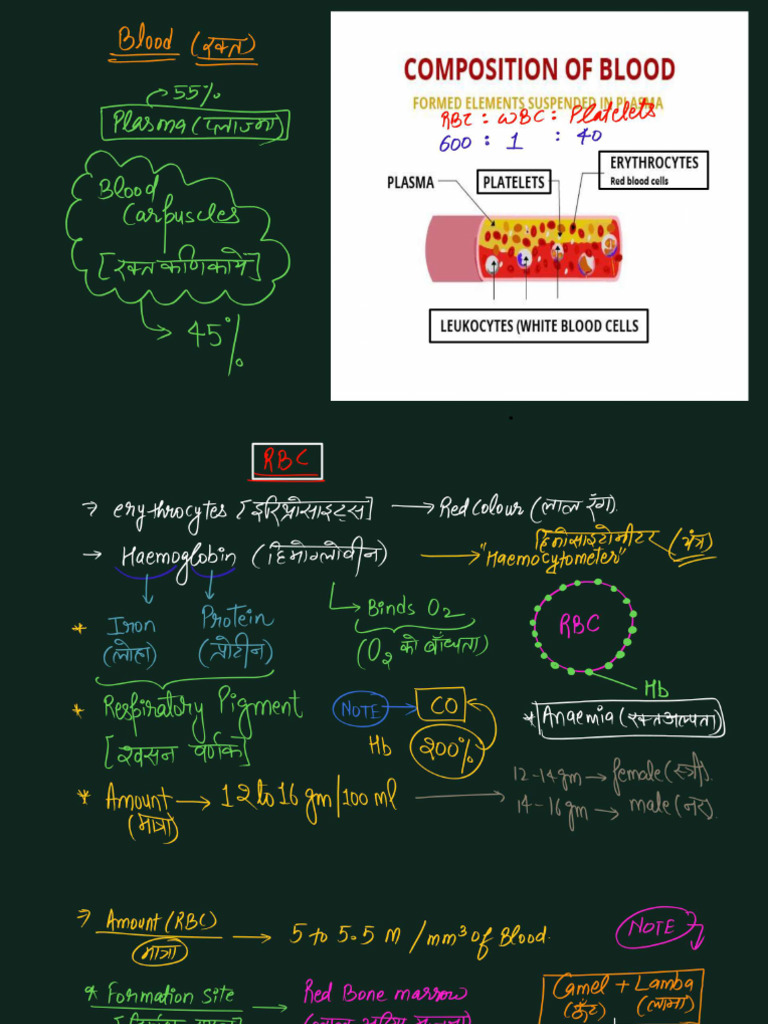 Blood (रक्त)
55%
Plasma (प्लाज्मा)
Blood
Carpuscles
[रक्त कणिकायें]
45%
COMPOSITION OF BLOOD
FORMED ELEMENTS SUSPENDED IN PLASMA
RBC : WBC : Platelets
600 : 1 : 40
ERYTHROCYTES
Red blood cells
PLASMA
PLATELETS
LEUKOCYTES (WHITE BLOOD CELLS
RBC
→ erythrocytes [इरिथ्रोसाइट्स] → Red Colour (लाल रंग).
→ Haemoglobin (हिमोग्लोवीन) → "Haemocytometer" हिमोसाइटोमीटर (यंत्र)
* Iron Protein
(लोहा) (प्रोटीन)
Binds O2
(O2 को बाँधता)
RBC
Hb
* Respiratory Pigment
[श्वसन वर्णक]
NOTE → CO
Hb 200%
* Anaemia (रक्तअल्पता)
* Amount → 12 to 16 gm/100 ml
(मात्रा)
12-14 gm → female (स्त्री).
14-16 gm → male (नर).
→ Amount (RBC) → 5 to 5.5 M /mm3 of Blood.
मात्रा
NOTE
* Formation Site → Red Bone marrow
Camel + Lamba
(ऊँट) (लामा)